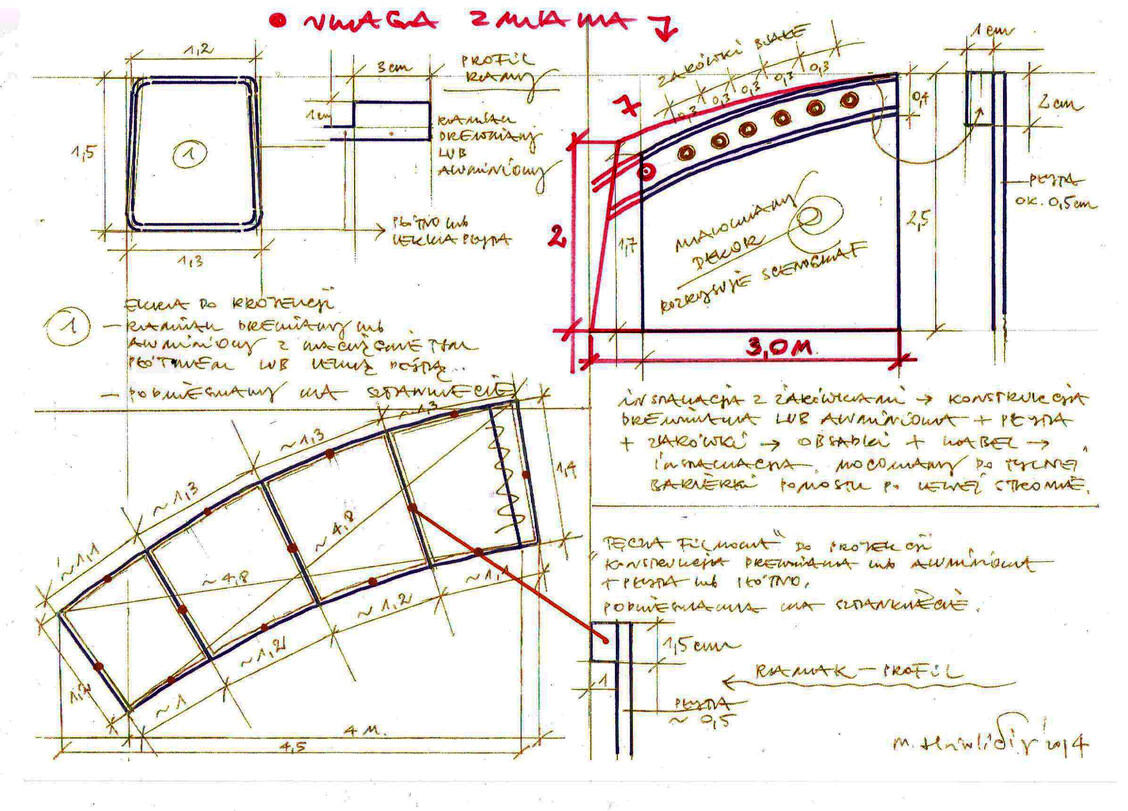 • UWAGA ZMIANA
1,2
1,5
1
1,3
3cm
1cm
PROFIL
RAMY
RAMIAK
DREWNIANY
LUB
ALUMINIOWY
PŁÓTNO LUB
LEKKA PŁYTA
ŻARÓWKI BIAŁE
0,3
0,3
0,3
0,3
0,3
7
0,4
2
1,7
2,5
MALOWANY
DEKOR
ROZRYSUJE SCENOGRAF
3,0 M.
1cm
2cm
PŁYTA
OK. 0,5cm
1
EKRAN DO PROJEKCJI
— RAMIAK DREWNIANY LUB
ALUMINIOWY Z NACIĄGNIĘTYM
PŁÓTNEM LUB LEKKĄ PŁYTĄ..
— PODWIESZANY NA SZTANKIECIE
INSTALACJA Z ŻARÓWKAMI → KONSTRUKCJA
DREWNIANA LUB ALUMINIOWA + PŁYTA
+ ŻARÓWKI → OBSADKI + KABEL →
INSTALACJA. MOCOWANY DO TYLNEJ
BARIERKI POMOSTU PO LEWEJ STRONIE.
~1,1
~1,3
~1,3
~1,3
1,4
~4,8
~4,8
~1,1
~1,2
~1,2
~1
1,2
4 M.
4,5
FILMOWA" DO PROJEKCJI
KONSTRUKCJA DREWNIANA LUB ALUMINIOWA
+ PŁYTA LUB PŁÓTNO.
PODWIESZANA NA SZTANKIECIE.
1,5cm
1
RAMIAK – PROFIL
PŁYTA
~ 0,5
2014